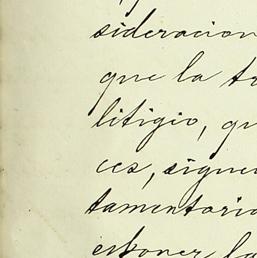 sideracion
que la tr
litigio, qu
ces, siguen
tamentaria
esponer la